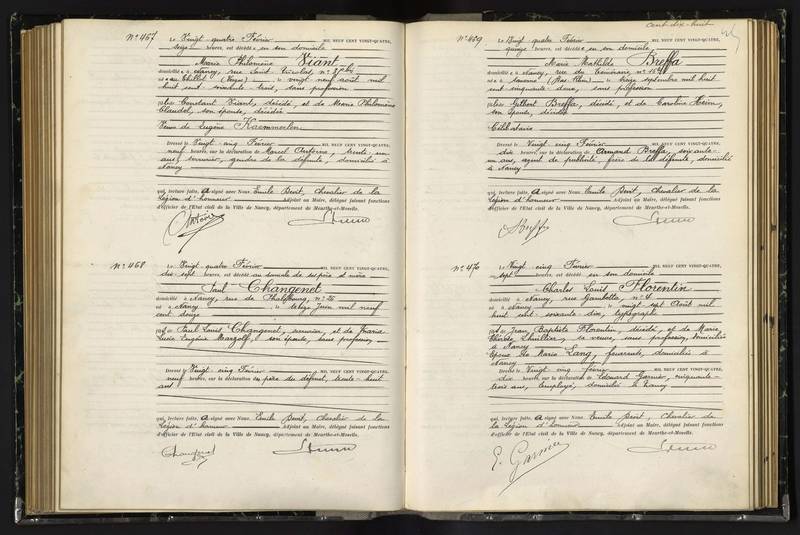 N° 467
Le Vingt quatre Février MIL NEUF CENT VINGT-QUATRE,
seize heures, est décédée en son domicile
Marie Philomène Viant
domiciliée à Nancy, rue Saint Nicolas, n°
née au Thillot (Vosges) le vingt neuf août mil
huit cent soixante-trois, sans profession
fille de Constant Viant, décédé, et de Marie Philomène
Claudel, son épouse, décédée
Veuve de Eugène Kaemmerlen
Dressé le Vingt-cinq Février MIL NEUF CENT VINGT-QUATRE,
neuf heures, sur la déclaration de Marcel Antoine, trente-un
ans, serrurier, gendre de la défunte, domicilié à
Nancy
qui, lecture faite, a signé avec Nous. Emile Devit, Chevalier de la
Légion d'honneur Adjoint au Maire, délégué faisant fonctions
d'officier de l'Etat civil de la Ville de Nancy, département de Meurthe-et-Moselle.
N° 468
Le Vingt quatre Février MIL NEUF CENT VINGT-QUATRE,
dix sept heures, est décédé au domicile de ses père et mère
Paul Changenet
domicilié à Nancy, rue de Phalsbourg, n° 26
né à Nancy le treize Juin mil neuf
cent douze
fils de Paul Louis Changenet, et de Jeanne
Lucie Eugénie Marzolf, son épouse, sans profession
Dressé le Vingt-cinq Février MIL NEUF CENT VINGT-QUATRE,
neuf heures, sur la déclaration du père du défunt, trente-huit
ans
qui, lecture faite, a signé avec Nous. Emile Devit, Chevalier de la
Légion d'honneur Adjoint au Maire, délégué faisant fonctions
d'officier de l'Etat civil de la Ville de Nancy, département de Meurthe-et-Moselle.
Changenet
cent dix-huit
N° 469
Le Vingt quatre Février MIL NEUF CENT VINGT-QUATRE,
quinze heures, est décédée en son domicile
Marie Mathilde Breffa
domiciliée à Nancy, rue du Téméraire n°
née à Saverne (Bas Rhin) le treize septembre mil huit
cent cinquante-deux, sans profession
fille de Gilbert Breffa, décédé et de Caroline Heim,
son épouse, décédée
Célibataire
Dressé le Vingt-cinq Février MIL NEUF CENT VINGT-QUATRE,
dix heures, sur la déclaration de Armand Breffa, soixante-
un ans, agent de publicité, frère de la défunte, domicilié
à Nancy
qui, lecture faite, a signé avec Nous. Emile Devit, Chevalier de la
Légion d'honneur Adjoint au Maire, délégué faisant fonctions
d'officier de l'Etat civil de la Ville de Nancy, département de Meurthe-et-Moselle.
Breffa
N° 470
Le Vingt cinq Février MIL NEUF CENT VINGT-QUATRE,
sept heures, est décédé en son domicile
Charles Louis Florentin
domicilié à Nancy, rue Gambetta n° 4
né à Nancy le vingt sept Août mil
huit cent soixante-dix, typographe
fils de Jean Baptiste Florentin, décédé, et de Marie
Thérèse Lhuillier, sa veuve, sans profession, domiciliée
à Nancy
Epoux de Marie Lang, domiciliée à
Nancy
Dressé le Vingt-cinq février MIL NEUF CENT VINGT-QUATRE,
dix heures, sur la déclaration de Edouard Garnier, cinquante-
trois ans, employé, domicilié à Nancy
qui, lecture faite, a signé avec Nous. Emile Devit, Chevalier de
la Légion d'honneur Adjoint au Maire, délégué faisant fonctions
d'officier de l'Etat civil de la Ville de Nancy, département de Meurthe-et-Moselle.
E. Garnier